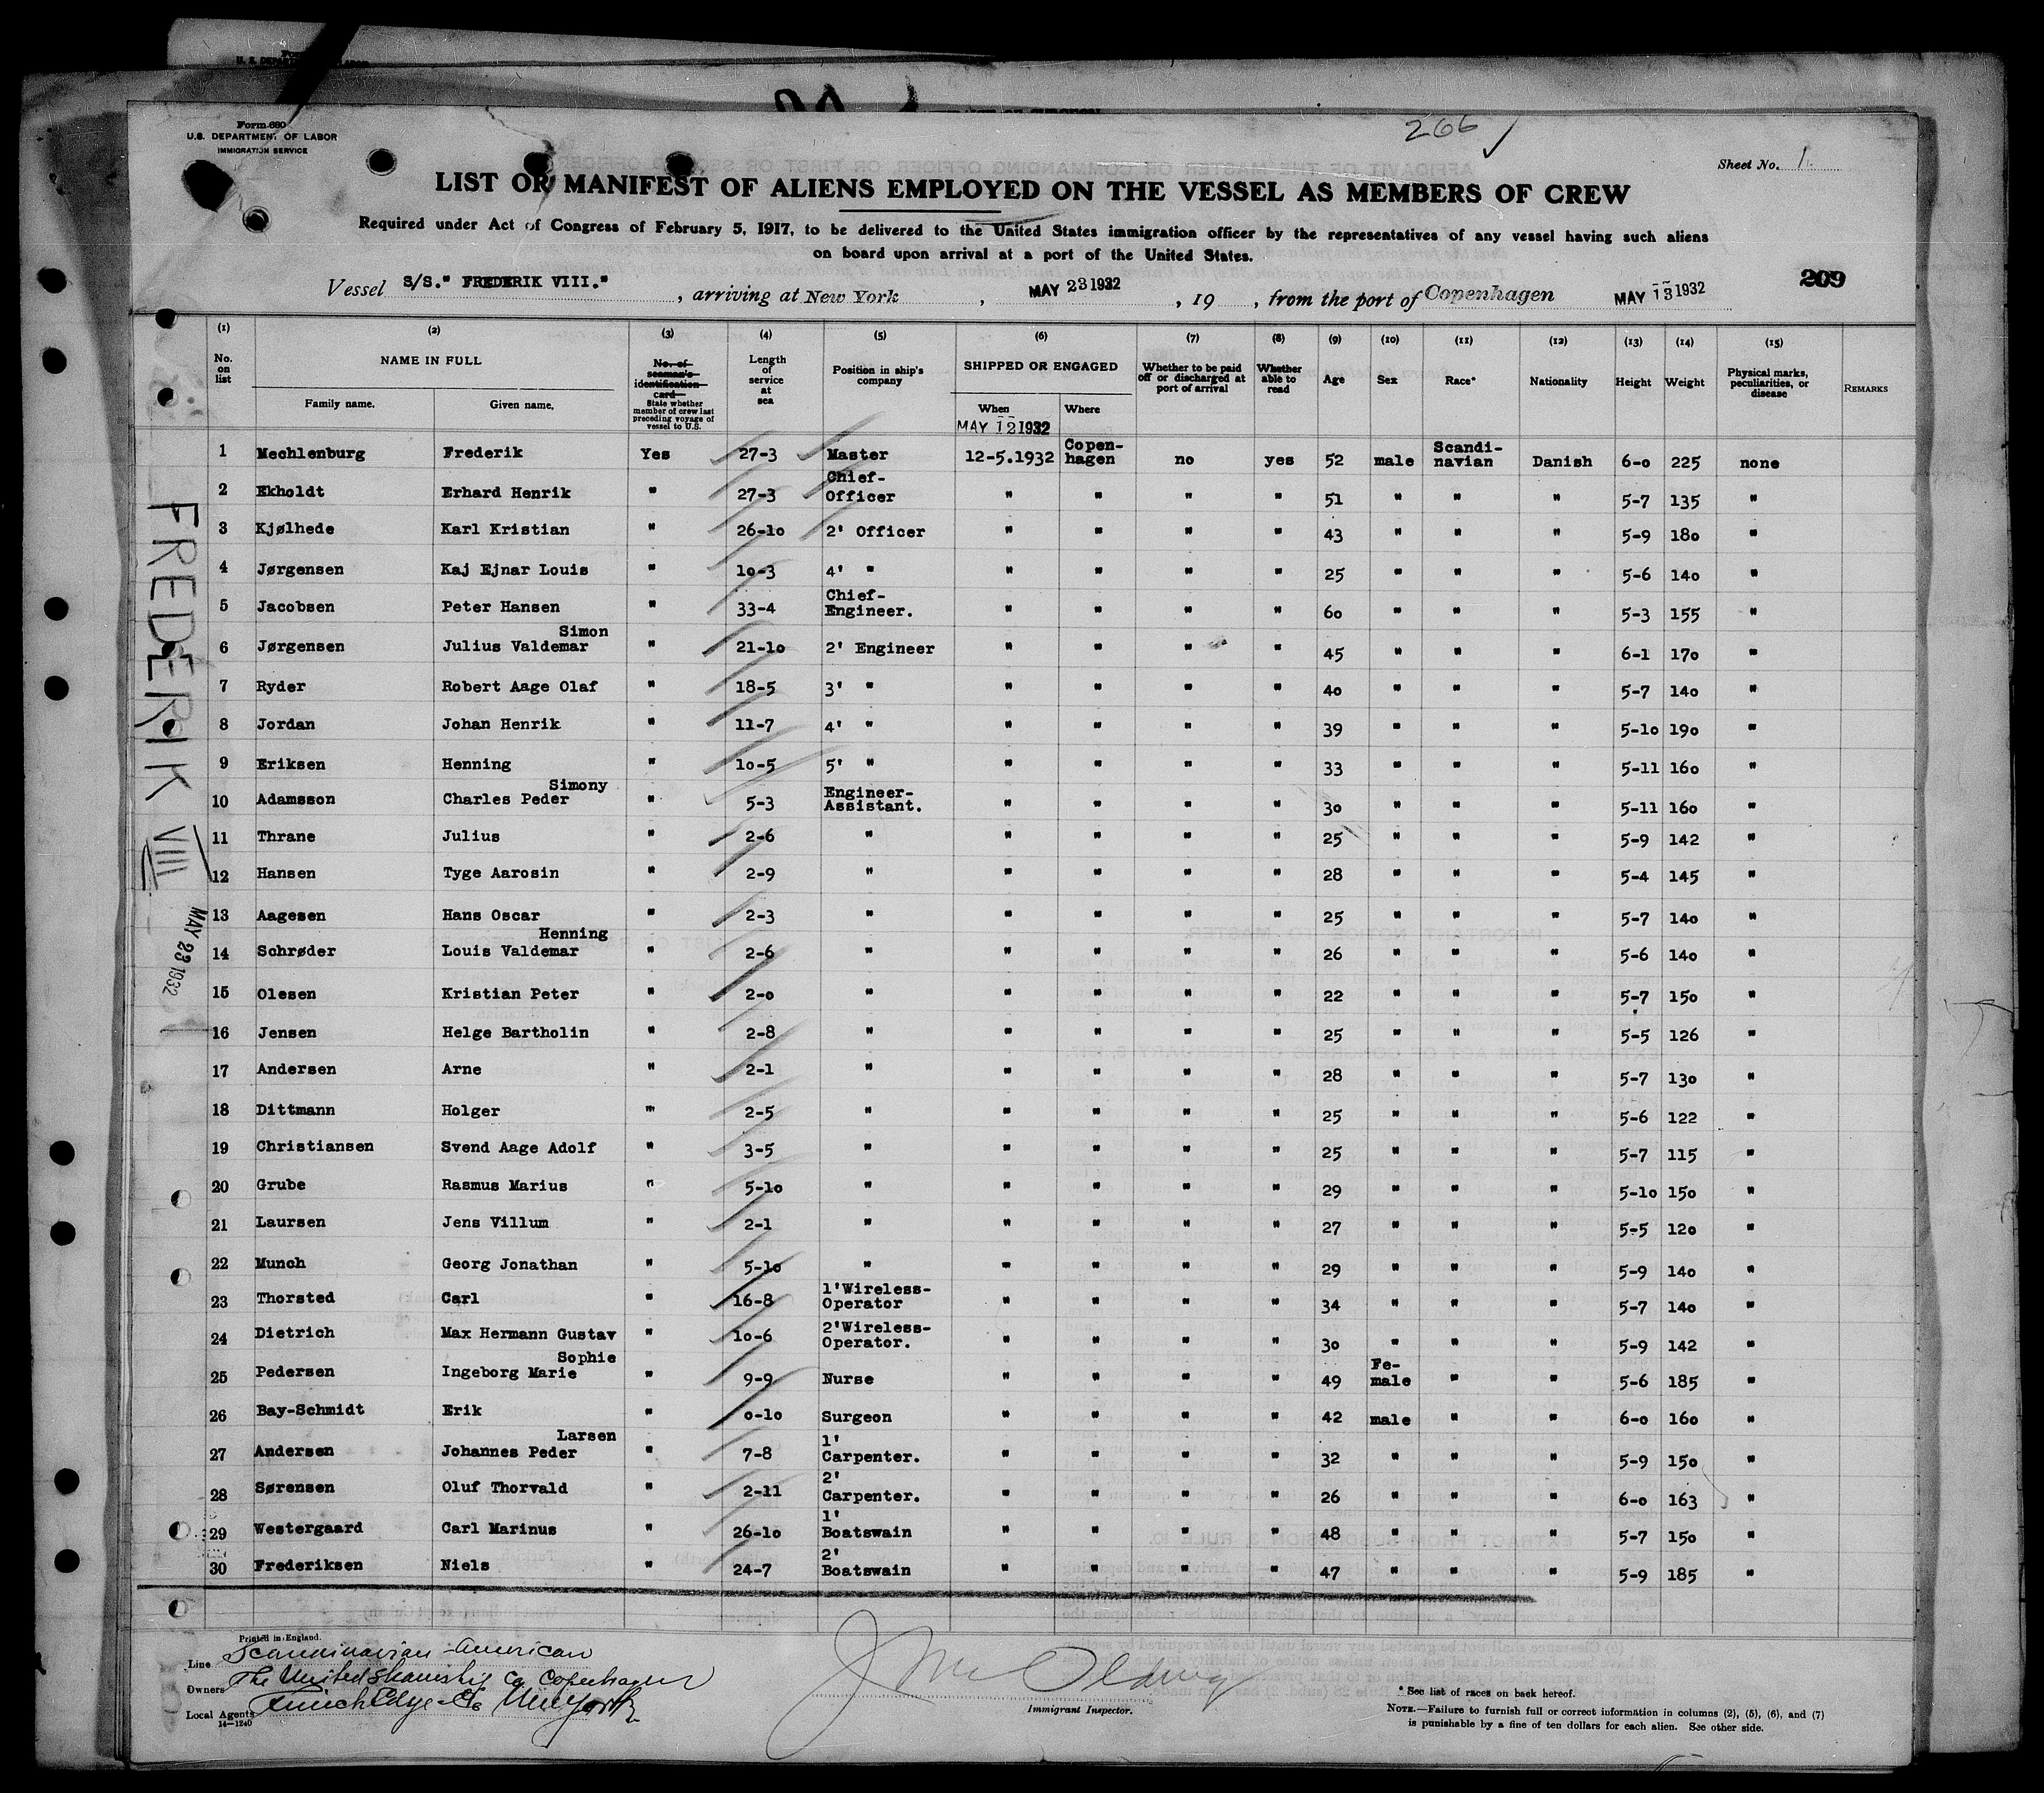 Form 680
U.S. DEPARTMENT OF LABOR
IMMIGRATION SERVICE
266
Sheet No. 1
LIST OR MANIFEST OF ALIENS EMPLOYED ON THE VESSEL AS MEMBERS OF CREW
Required under Act of Congress of February 5, 1917, to be delivered to the United States immigration officer by the representatives of any vessel having such aliens
on board upon arrival at a port of the United States.
Vessel S/S." FREDERIK VIII." , arriving at New York , MAY 23 1932 , 19 , from the port of Copenhagen MAY 13 1932
209
(1) (2) (3) (4) (5) (6) (7) (8) (9) (10) (11) (12) (13) (14) (15)
No. on list
NAME IN FULL
Family name. Given name.
No. of seaman's identification card
State whether member of crew last preceding voyage of vessel to U.S.
Length of service at sea
Position in ship's company
SHIPPED OR ENGAGED
When Where
MAY 12 1932
Whether to be paid off or discharged at port of arrival
Whether able to read
Age Sex Race* Nationality Height Weight
Physical marks, peculiarities, or disease
REMARKS
1 Mechlenburg Frederik Yes 27-3 Master 12-5.1932 Copen-hagen no yes 52 male Scandi-navian Danish 6-0 225 none
2 Ekholdt Erhard Henrik " 27-3 Chief-Officer " " " " 51 " " " 5-7 135 "
3 Kjølhede Karl Kristian " 26-10 2' Officer " " " " 43 " " " 5-9 180 "
4 Jørgensen Kaj Ejnar Louis " 10-3 4' " " " " " 25 " " " 5-6 140 "
5 Jacobsen Peter Hansen " 33-4 Chief-Engineer. " " " " 60 " " " 5-3 155 "
6 Jørgensen Julius Valdemar Simon " 21-10 2' Engineer " " " " 45 " " " 6-1 170 "
7 Ryder Robert Aage Olaf " 18-5 3' " " " " " 40 " " " 5-7 140 "
8 Jordan Johan Henrik " 11-7 4' " " " " " 39 " " " 5-10 190 "
9 Eriksen Henning " 10-5 5' " " " " " 33 " " " 5-11 160 "
10 Adamsson Charles Peder Simony " 5-3 Engineer-Assistant. " " " " 30 " " " 5-11 160 "
11 Thrane Julius " 2-6 " " " " " 25 " " " 5-9 142 "
12 Hansen Tyge Aarosin " 2-9 " " " " " 28 " " " 5-4 145 "
13 Aagesen Hans Oscar " 2-3 " " " " " 25 " " " 5-7 140 "
14 Schrøder Louis Valdemar Henning " 2-6 " " " " " 26 " " " 5-6 140 "
15 Olesen Kristian Peter " 2-0 " " " " " 22 " " " 5-7 150 "
16 Jensen Helge Bartholin " 2-8 " " " " " 25 " " " 5-5 126 "
17 Andersen Arne " 2-1 " " " " " 28 " " " 5-7 130 "
18 Dittmann Holger " 2-5 " " " " " 25 " " " 5-6 122 "
19 Christiansen Svend Aage Adolf " 3-5 " " " " " 25 " " " 5-7 115 "
20 Grube Rasmus Marius " 5-10 " " " " " 29 " " " 5-10 150 "
21 Laursen Jens Villum " 2-1 " " " " " 27 " " " 5-5 120 "
22 Munch Georg Jonathan " 5-10 " " " " " 29 " " " 5-9 140 "
23 Thorsted Carl " 16-8 1'Wireless-Operator " " " " 34 " " " 5-7 140 "
24 Dietrich Max Hermann Gustav " 10-6 2'Wireless-Operator. " " " " 30 " " " 5-9 142 "
25 Pedersen Ingeborg Marie Sophie " 9-9 Nurse " " " " 49 Fe-male " " 5-6 185 "
26 Bay-Schmidt Erik " 0-10 Surgeon " " " " 42 male " " 6-0 160 "
27 Andersen Johannes Peder Larsen " 7-8 1' Carpenter. " " " " 32 " " " 5-9 150 "
28 Sørensen Oluf Thorvald " 2-11 2' Carpenter. " " " " 26 " " " 6-0 163 "
29 Westergaard Carl Marinus " 26-10 1' Boatswain " " " " 48 " " " 5-7 150 "
30 Frederiksen Niels " 24-7 2' Boatswain " " " " 47 " " " 5-9 185 "
FREDERIK VIII
MAY 23 1932
Printed in England.
Line Scandinavian-American
Owners The United Steamship Co Copenhagen
Local Agents Funch Edye & Co New York
14—1240
Immigrant Inspector.
* See list of races on back hereof.
NOTE.—Failure to furnish full or correct information in columns (2), (5), (6), and (7)
is punishable by a fine of ten dollars for each alien. See other side.